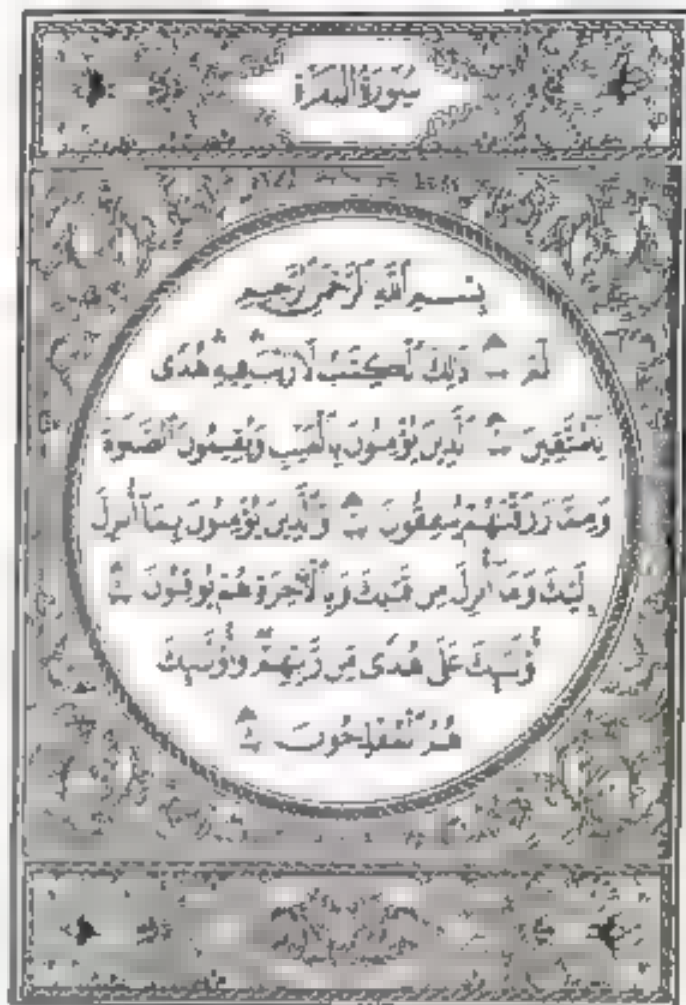 سُورَةُ الْبَقَرَةِ
بِسْمِ اللَّهِ الرَّحْمَٰنِ الرَّحِيمِ
الم ذَٰلِكَ الْكِتَابُ لَا رَيْبَ فِيهِ هُدًى
لِلْمُتَّقِينَ الَّذِينَ يُؤْمِنُونَ بِالْغَيْبِ وَيُقِيمُونَ الصَّلَوٰةَ
وَمِمَّا رَزَقْنَاهُمْ يُنفِقُونَ وَالَّذِينَ يُؤْمِنُونَ بِمَا أُنزِلَ
إِلَيْكَ وَمَا أُنزِلَ مِن قَبْلِكَ وَبِالْآخِرَةِ هُمْ يُوقِنُونَ
أُولَٰئِكَ عَلَىٰ هُدًى مِّن رَّبِّهِمْ وَأُولَٰئِكَ
هُمُ الْمُفْلِحُونَ